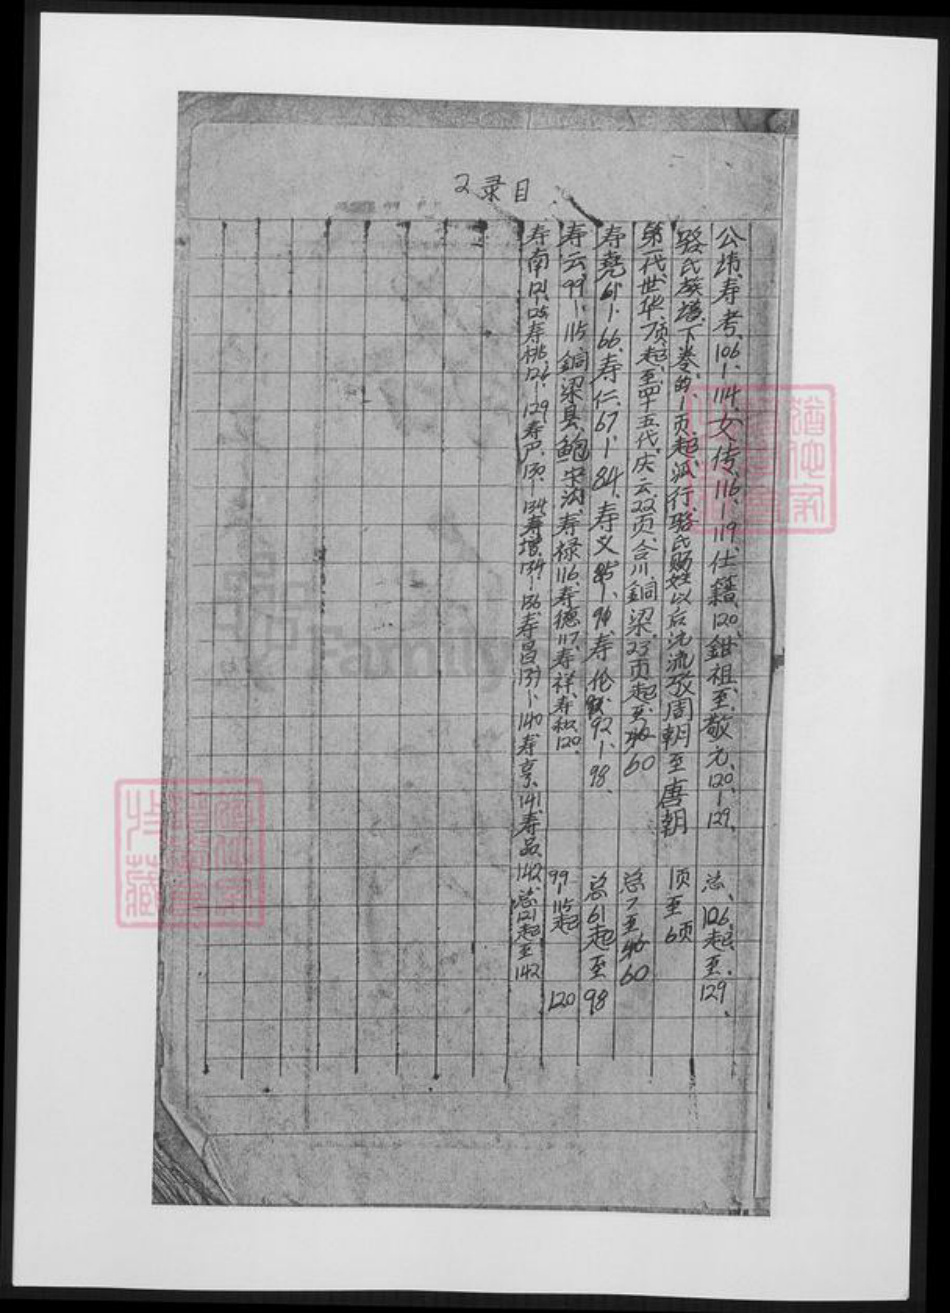 2录目
公埼、寿考、106-114、女传、116-119、仕籍、120、鉗祖、至、敬元、120-129、 总、106、起、至、129、
骆氏族谱、下卷的、1页、起、派、行、骆氏赐姓以后沈流、周朝至唐朝 1页至6页
第一代、世华、7页、起、至、四十五代、庆云、22页、合川、銅梁、23页起、至、60 总7至60
寿堯、61-66、寿仁、67-84、寿义、85-、寿伦、92-98、 总61起至98
寿云、99-115、銅梁县、鲍家沟、寿禄116、寿德117、寿祥、寿、120、 99-115起 120
寿南121、125、寿桃、126-129、寿严、130、134、寿增、134-136、寿昌137-140、寿亨、141、寿品、142、总121起至142